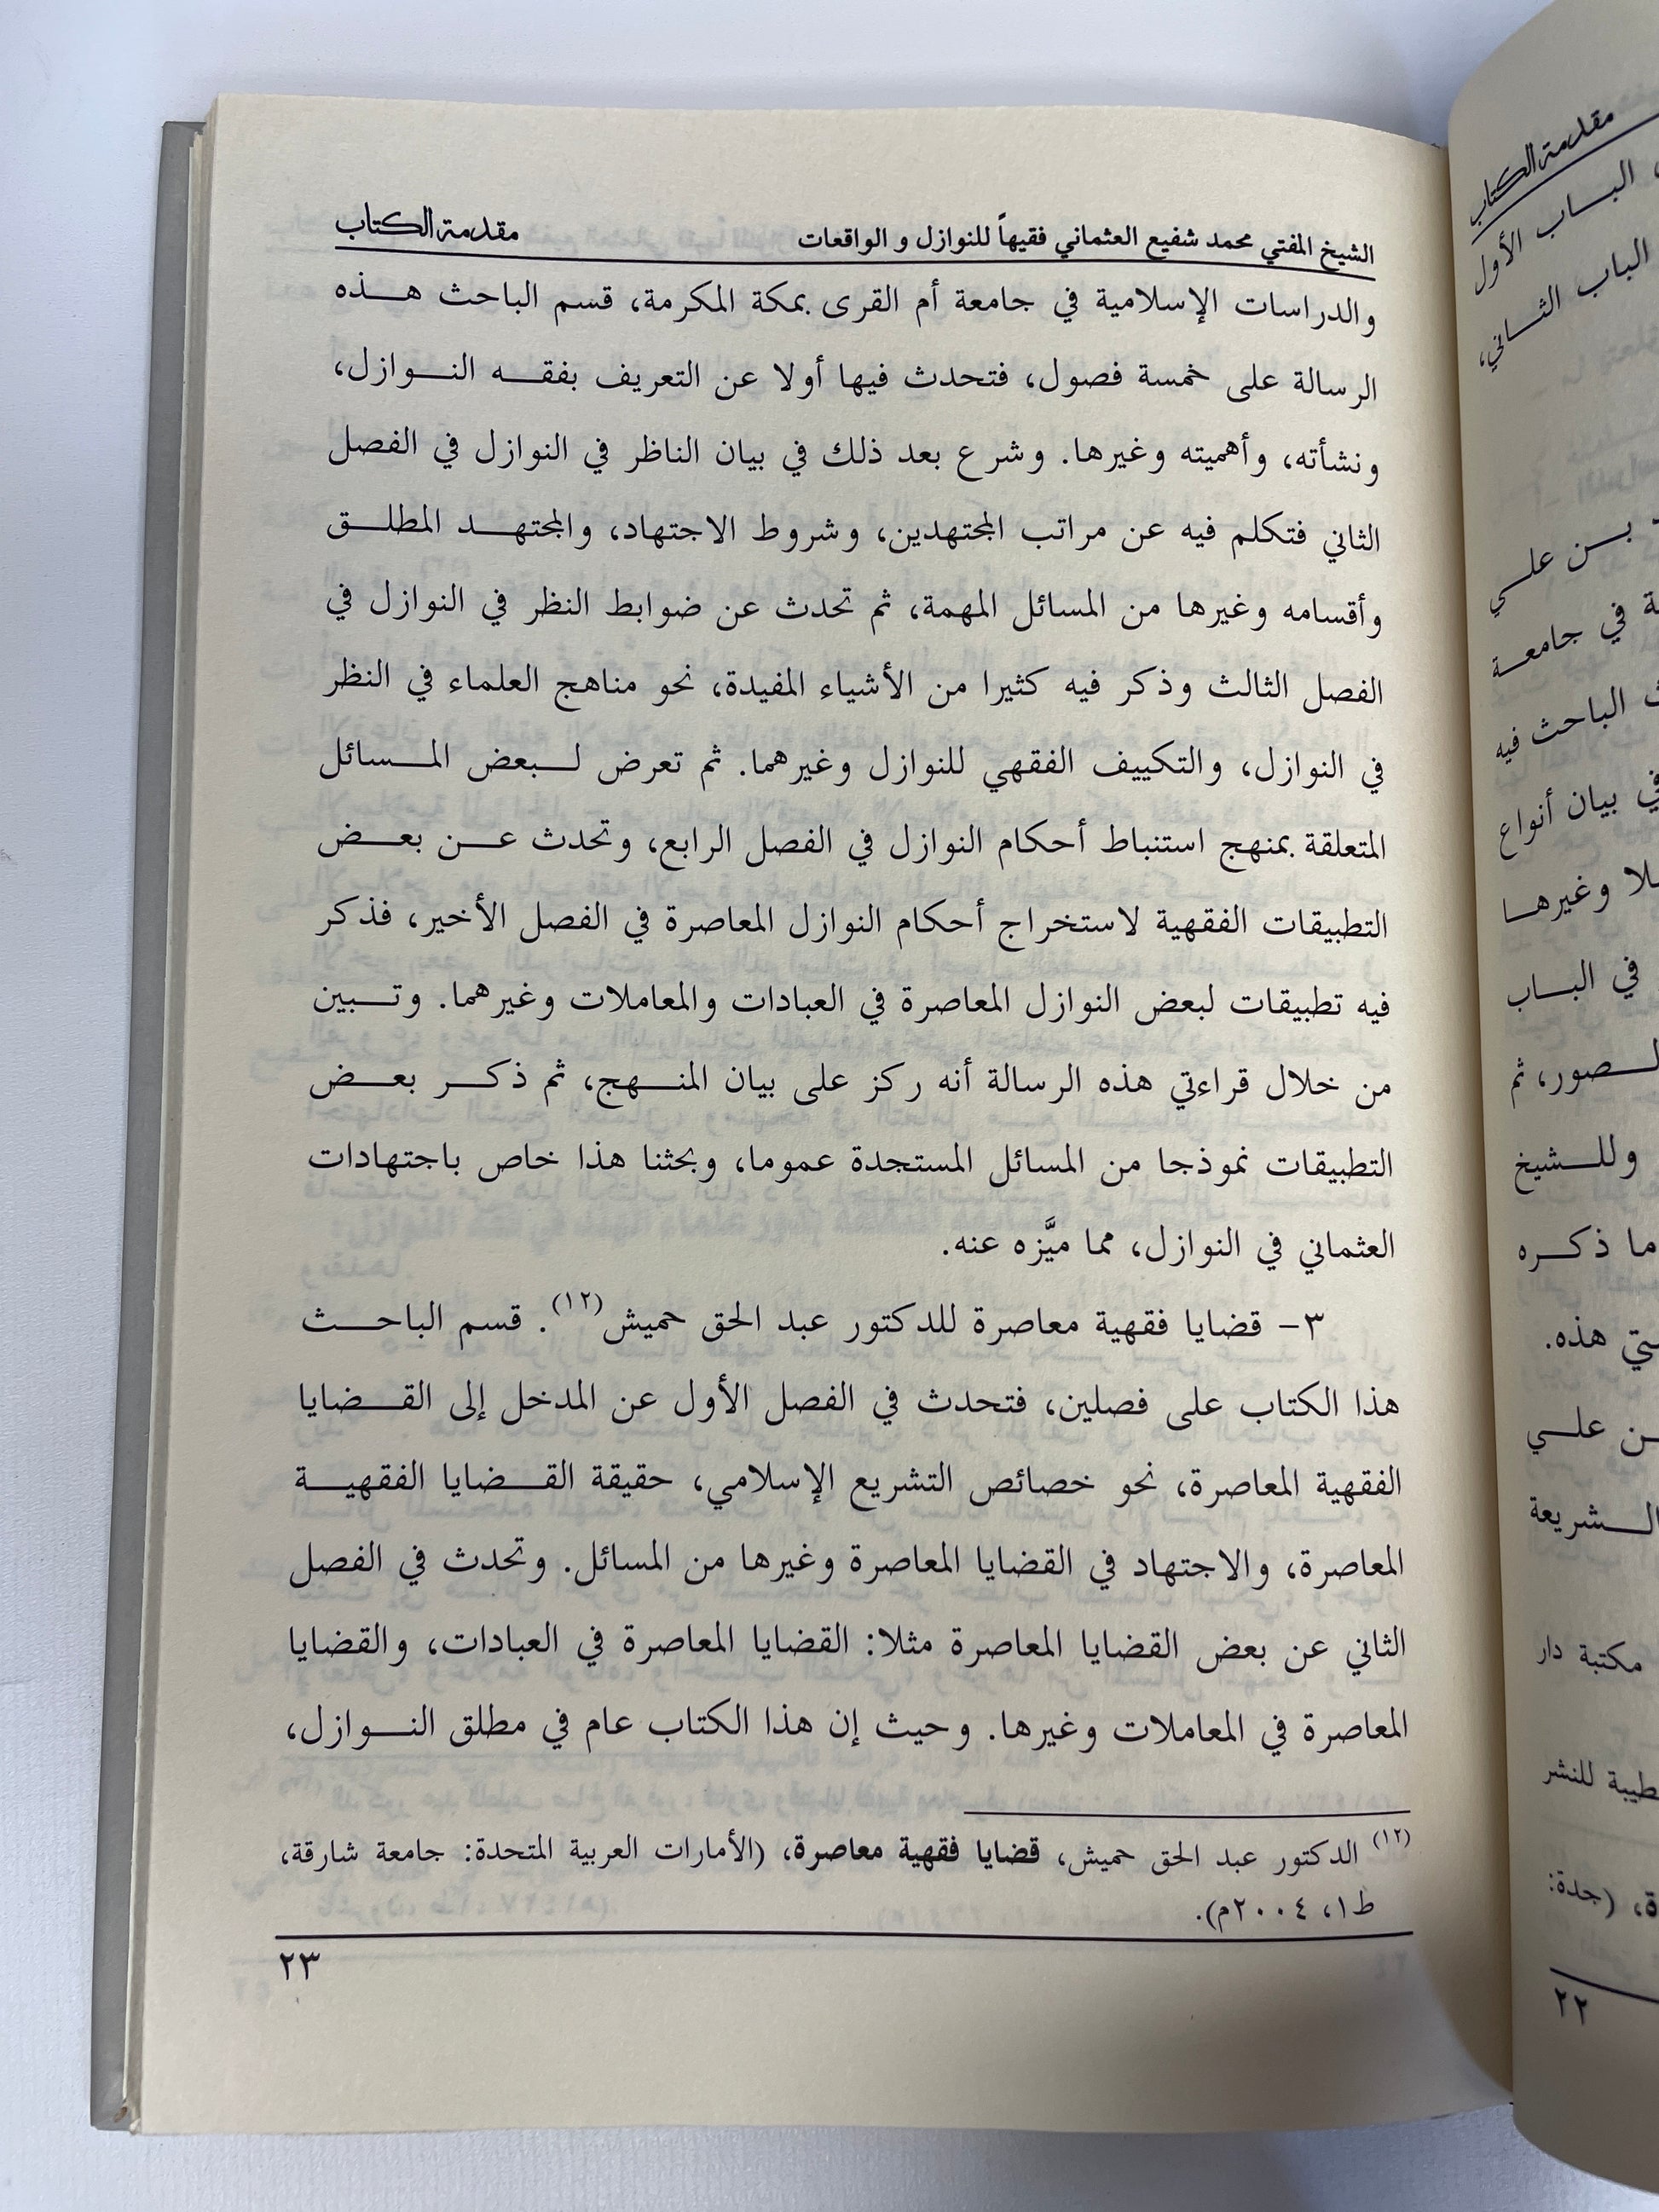 الشيخ المفتي محمد شفيع العثماني فقيهاً للنوازل و الواقعات مقدمة الكتاب
والدراسات الإسلامية في جامعة أم القرى بمكة المكرمة، قسم الباحث هذه
الرسالة على خمسة فصول، فتحدث فيها أولا عن التعريف بفقه النوازل،
ونشأته، وأهميته وغيرها. وشرع بعد ذلك في بيان الناظر في النوازل في الفصل
الثاني فتكلم فيه عن مراتب المجتهدين، وشروط الاجتهاد، والمجتهد المطلق
وأقسامه وغيرها من المسائل المهمة، ثم تحدث عن ضوابط النظر في النوازل في
الفصل الثالث وذكر فيه كثيرا من الأشياء المفيدة، نحو مناهج العلماء في النظر
في النوازل، والتكييف الفقهي للنوازل وغيرهما. ثم تعرض لبعض المسائل
المتعلقة بمنهج استنباط أحكام النوازل في الفصل الرابع، وتحدث عن بعض
التطبيقات الفقهية لاستخراج أحكام النوازل المعاصرة في الفصل الأخير، فذكر
فيه تطبيقات لبعض النوازل المعاصرة في العبادات والمعاملات وغيرهما. وتبين
من خلال قراءتي هذه الرسالة أنه ركز على بيان المنهج، ثم ذكر بعض
التطبيقات نموذجا من المسائل المستجدة عموما، وبحثنا هذا خاص باجتهادات
العثماني في النوازل، مما ميَّزه عنه.
٣- قضايا فقهية معاصرة للدكتور عبد الحق حميش(١٢). قسم الباحث
هذا الكتاب على فصلين، فتحدث في الفصل الأول عن المدخل إلى القضايا
الفقهية المعاصرة، نحو خصائص التشريع الإسلامي، حقيقة القضايا الفقهية
المعاصرة، والاجتهاد في القضايا المعاصرة وغيرها من المسائل. وتحدث في الفصل
الثاني عن بعض القضايا المعاصرة مثلا: القضايا المعاصرة في العبادات، والقضايا
المعاصرة في المعاملات وغيرها. وحيث إن هذا الكتاب عام في مطلق النوازل،
(١٢) الدكتور عبد الحق حميش، قضايا فقهية معاصرة، (الأمارات العربية المتحدة: جامعة شارقة،
ط١، ٢٠٠٤م).
٢٣
مقدمة الكتاب
الباب الأول
الباب الثاني،
بن علي
في جامعة
الباحث فيه
بيان أنواع
وغيرها
في الباب
الصور، ثم
وللشيخ
ما ذكره
هذه.
علي
الشريعة
مكتبة دار
طيبة للنشر
(جدة:
٢٢